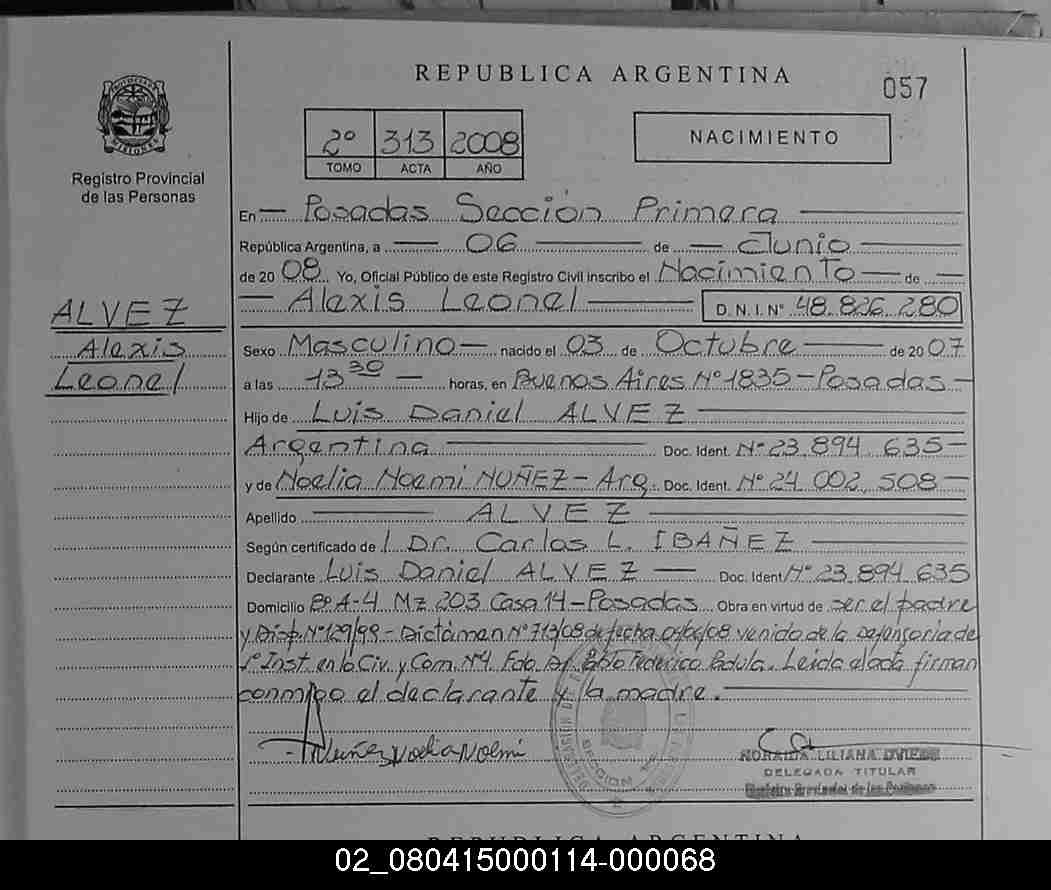 REPUBLICA ARGENTINA
057
PROVINCIA
MISIONES
Registro Provincial
de las Personas
2º 313 2008
TOMO ACTA AÑO
NACIMIENTO
En Posadas Sección Primera
República Argentina, a 06 de Junio
de 2008 Yo, Oficial Público de este Registro Civil inscribo el Nacimiento de
Alexis Leonel D.N.I.Nº 48.826.280
ALVEZ
Alexis
Leonel
Sexo Masculino nacido el 03 de Octubre de 2007
a las 13 30 horas, en Buenos Aires Nº 1835 - Posadas
Hijo de Luis Daniel ALVEZ
Argentina Doc. Ident. Nº 23.894.635
y de Noelia Noemi NUÑEZ - Arg. Doc. Ident. Nº 24.002.508
Apellido ALVEZ
Según certificado de Dr. Carlos L. IBAÑEZ
Declarante Luis Daniel ALVEZ Doc. Ident Nº 23.894.635
Domicilio Bº A-4 Mz 203 Casa 14 - Posadas Obra en virtud de ser el padre
y Disp. Nº 129/99 - Dictámen Nº 713/08 de fecha venido de la Defensoria de
1º Inst. en lo Civ. y Com. Nº 4 Fdo. Dr. Pablo Federico Padula. Leida el acta firman
conmigo el declarante y la madre.
Nuñez Noelia Noemi
DELEGACION
SECCION
LILIANA OVIEDO
DELEGADA TITULAR
Registro Provincial de las Personas
REPUBLICA ARGENTINA
02_080415000114-000068